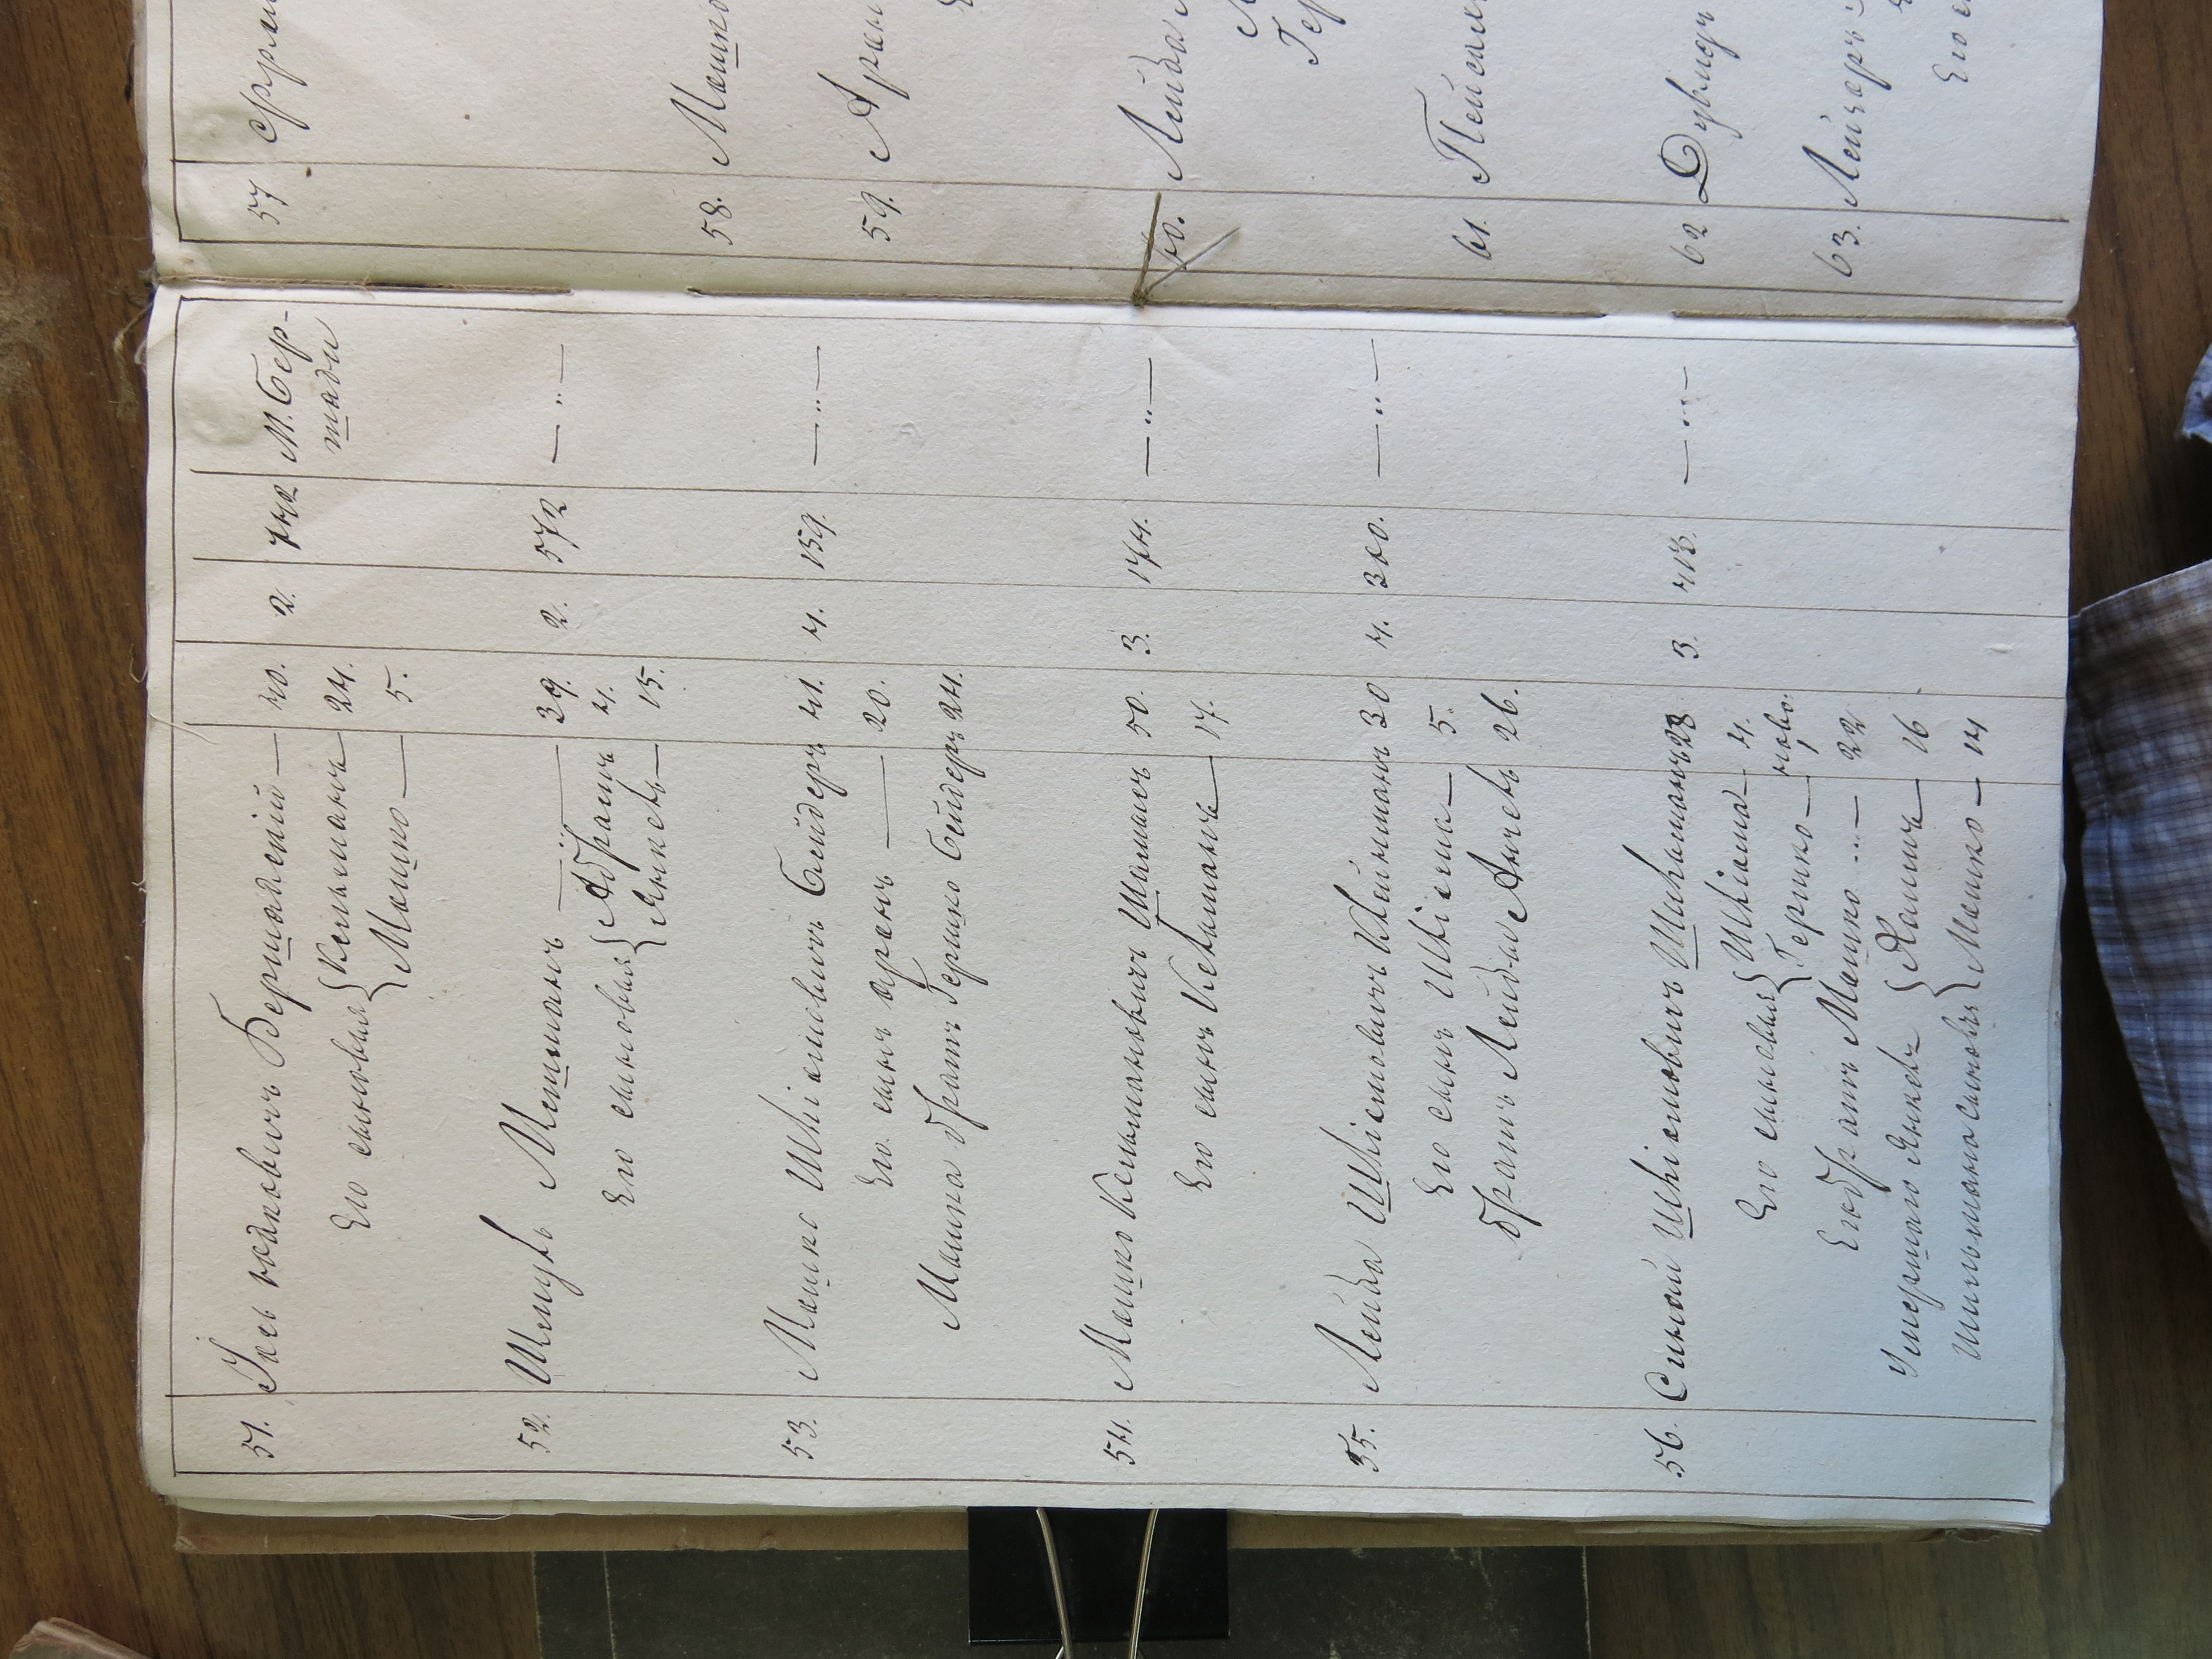 51. Іось Юдковичъ Бершадскій — 40. 2. 742 М. Бер-
шади
Его сыновья { Кельманъ — 24.
Мошко — 5.
52. Шмуль Мошманъ — 39. 2. 572 — „ —
Его сыновья { Абрамъ 4.
Янкель — 15.
53. Мошко Шліомовичъ Бейдеръ 41. 4. 159. — „ —
Его сынъ Аронъ — 20.
Мошка братъ Гершко Бейдеръ 24.
54. Мошко Кельмановичъ Шамисъ 50. 3. 174. — „ —
Его сынъ Кельманъ — 17.
55. Лейба Шліомовичъ Клейнманъ 30 4. 300. — „ —
Его сынъ Шліома — 5.
братъ Лейба Анчель 26.
56. Синай Шліомовичъ Шихманъ 28 3. 413. — „ —
Его сыновья { Шліома — 4.
Гершко — ново.
Его братъ Мошко — 22
Умершаго Янкеля { Хаимъ — 16
Шильмана сыновья { Мошко — 14
57 Сфрои
58. Мошко
59. Арон
60. Лейба
Гер
61. Пейсах
62 Дувид
63. Лейзоръ
Его с